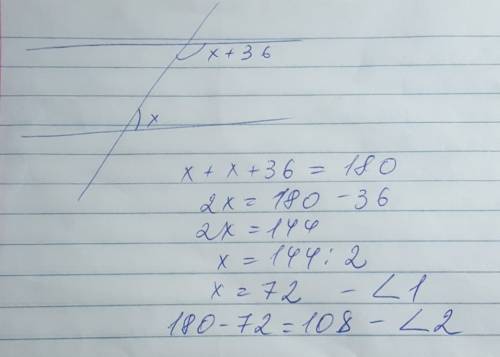 x + 36
x
x + x + 36 = 180
2x = 180 - 36
2x = 144
x = 144 : 2
x = 72 - ∠1
180 - 72 = 108 - ∠2